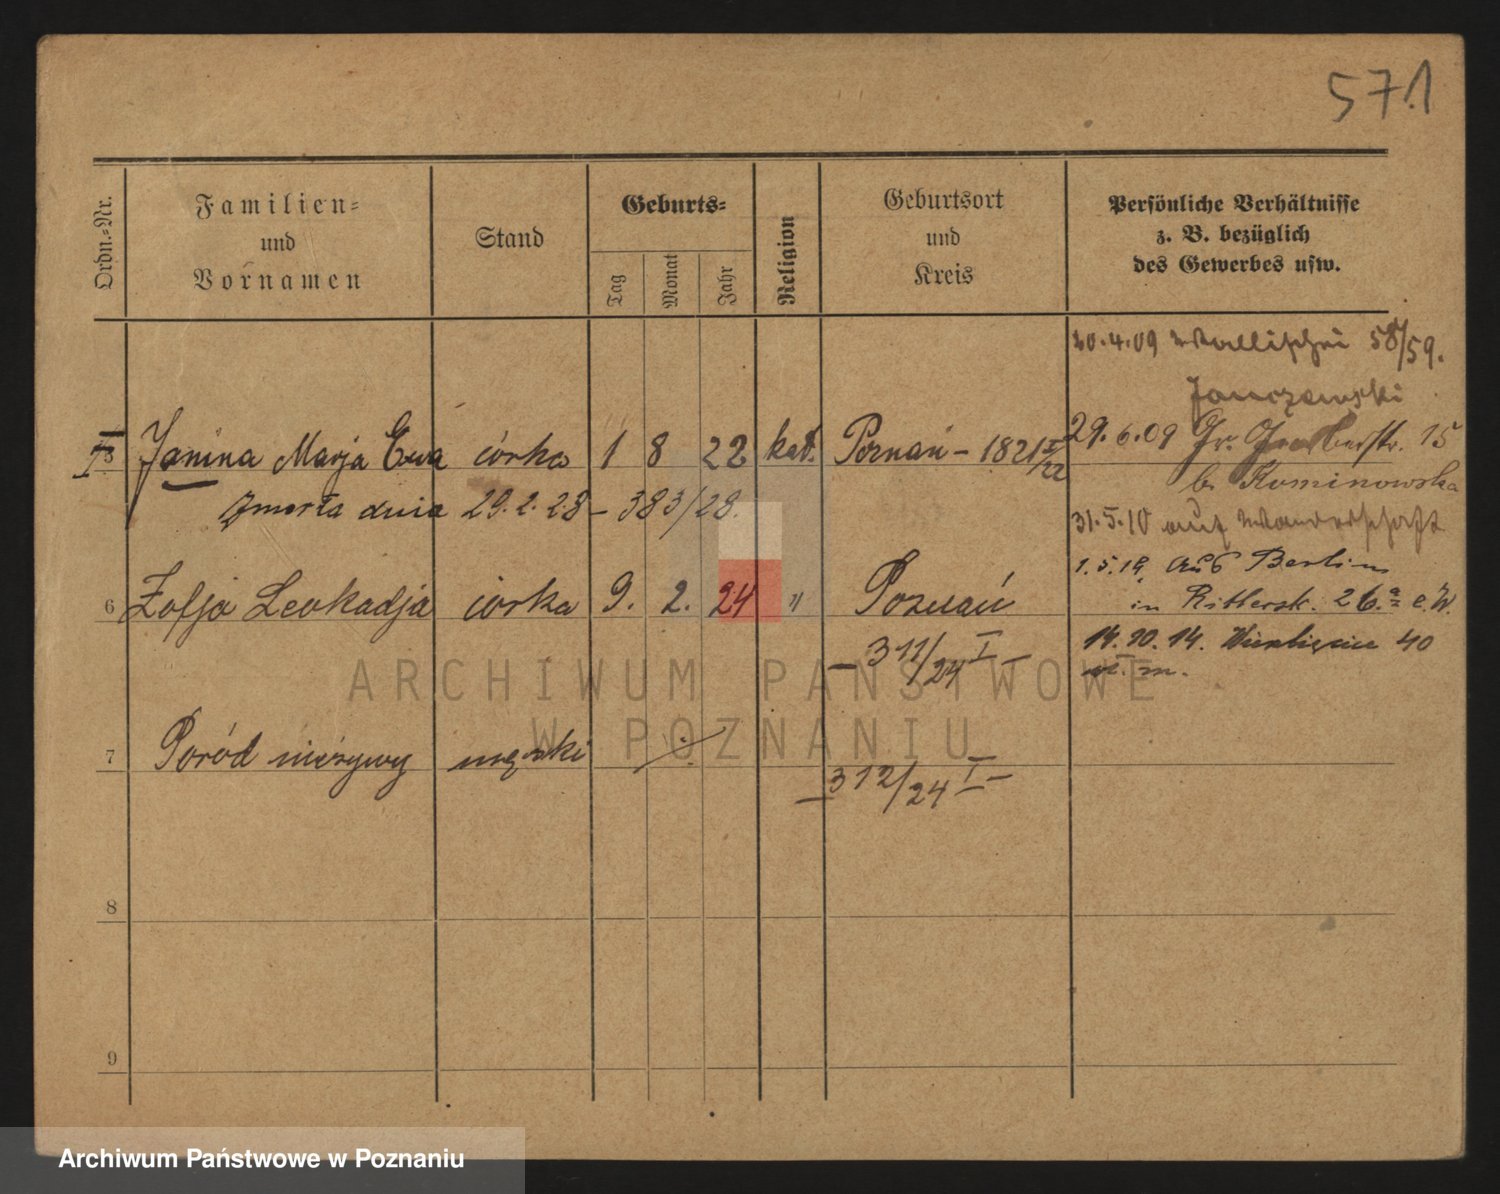 571
Ordn.-Nr.
Familien-
und
Vornamen
Stand
Geburts-
Tag
Monat
Jahr
Religion
Geburtsort
und
Kreis
Persönliche Verhältnisse
z. B. bezüglich
des Gewerbes usw.
20.4.09 Wallischei 58/59.
Janczewski
5 Janina Marja Ewa córka 1 8 22 kat. Poznań – 1821 I/22
29.6.09 Gr. Gerberstr. 15
b. Kominowska
zmarła dnia 29.2.28 – 383/28.
31.5.10 auf Wanderschaft
6 Zofja Leokadja córka 9. 2. 24 " Poznań
– 311/24 I –
1.5.19. aus Berlin
in Ritterstr. 26.
14.10.14. 40
7 Poród nieżywy męski ·/·
– 312/24 I –
8
9
ARCHIWUM PAŃSTWOWE
W POZNANIU
Archiwum Państwowe w Poznaniu